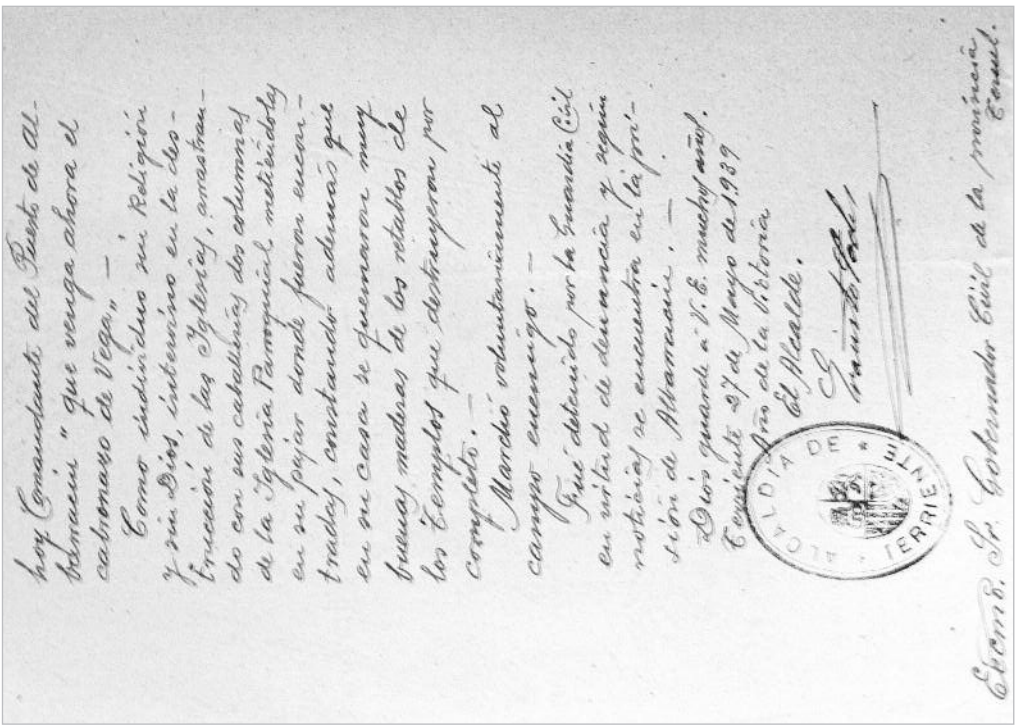 hoy Comandante del Puesto de Al-
barracin "que venga ahora el
cabronazo de Vega". —
Como individuo sin Religión
y sin Dios, intervino en la des-
trucción de las Iglesias, arrastran-
do con sus caballerías dos columnas
de la Iglesia Parroquial metiéndolas
en su pajar donde fueron encon-
tradas, constando además que
en su casa se quemaron muy
buenas maderas de los retablos de
los Templos que destruyeron por
completo. —
Marchó voluntariamente al
campo enemigo. —
Fué detenido por la Guardia Civil
en virtud de denuncia y según
noticias se encuentra en la pri-
sión de Albarracin. —
Dios guarde á V. E. muchos años.
Terriente 27 de Mayo de 1.939
Año de la Victoria
El Alcalde.
ALCALDIA DE * TERRIENTE *
Excmo. Sr. Gobernador Civil de la provincia
Teruel.